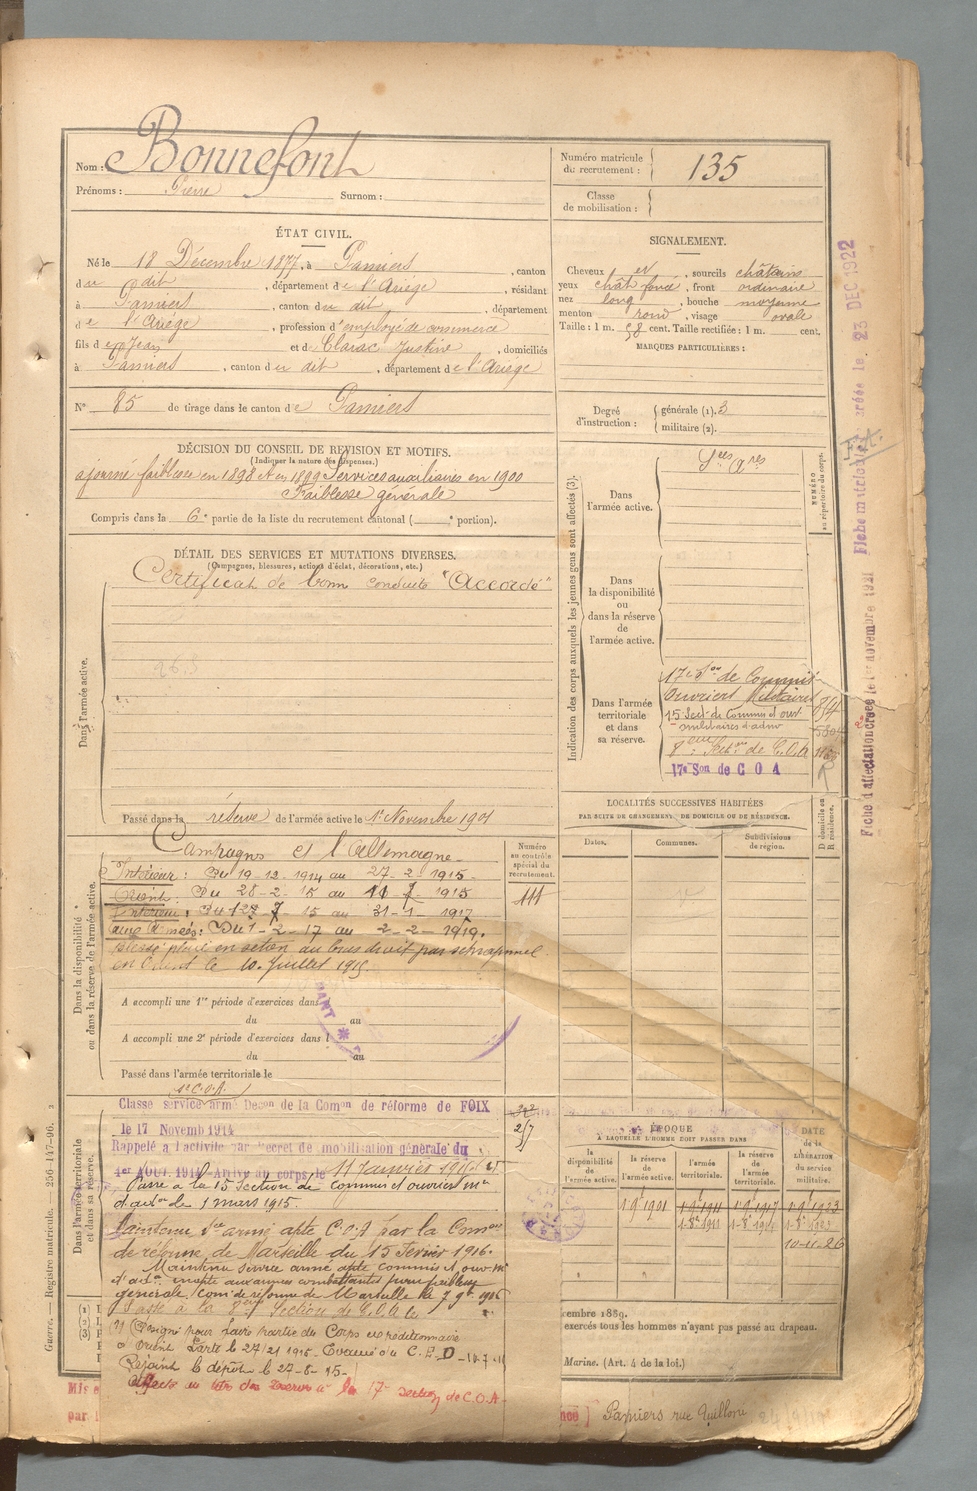 Nom : Bonnefont
Prénoms : Pierre Surnom :
Numéro matricule
du recrutement : 135
Classe
de mobilisation :
ÉTAT CIVIL.
Né le 18 Décembre 1877, à Pamiers, canton
du dit, département de l'Ariège, résidant
à Pamiers, canton du dit, département
de l'Ariège, profession d'employé de commerce
fils de Jean et de Clarac Justine, domiciliés
à Pamiers, canton du dit, département de l'Ariège
N° 85 de tirage dans le canton de Pamiers
SIGNALEMENT.
Cheveux et, sourcils châtains
yeux chât foncé, front ordinaire
nez long, bouche moyenne
menton rond, visage ovale
Taille : 1 m. 58 cent. Taille rectifiée : 1 m. cent.
MARQUES PARTICULIÈRES :
Degré
d'instruction :
générale (1). 3
militaire (2).
DÉCISION DU CONSEIL DE REVISION ET MOTIFS.
(Indiquer la nature des dispenses.)
ajourné faiblesse en 1898 et en 1899 Services auxiliaires en 1900
Faiblesse générale
Compris dans la 6e partie de la liste du recrutement cantonal ( e portion).
DÉTAIL DES SERVICES ET MUTATIONS DIVERSES.
(Campagnes, blessures, actions d'éclat, décorations, etc.)
Certificat de bonne conduite "Accordé"
Dans l'armée active.
Passé dans la réserve de l'armée active le 1er Novembre 1901
Indication des corps auxquels les jeunes gens sont affectés (3).
NUMÉRO
au répertoire du corps.
Dans
l'armée active.
Dans
la disponibilité
ou
dans la réserve
de
l'armée active.
Dans l'armée
territoriale
et dans
sa réserve.
17e Son de Commis
Ouvriers Militaires 834
15 Sect de Commis et ouv
militaires d'adm
8eme Section de C.O.A
17e Son de C O A
Fiche d'affectation créée le 1er novembre 1921
Fiche matricule créée le 23 DEC 1922
Dans la disponibilité
ou dans la réserve de l'armée active.
Campagnes et l'Allemagne
Intérieur : Du 19-12-1914 au 27-2-1915.
Orient : Du 28-2-15 au 11 7-1915
Intérieur : Du 12 7 15 au 31-1-1917
aux Armées : Du 1-2-17 au 2-2-1919.
en Orient le 10 Juillet 1915.
Numéro
au contrôle
spécial du
recrutement.
111
A accompli une 1re période d'exercices dans
du au
A accompli une 2e période d'exercices dans l
du au
Passé dans l'armée territoriale le
LOCALITÉS SUCCESSIVES HABITÉES
PAR SUITE DE CHANGEMENT DE DOMICILE OU DE RÉSIDENCE.
Dates.
Communes.
Subdivisions
de région.
D domicile ou
R résidence.
Dans l'armée territoriale
et dans sa réserve.
1e C.O.A.
Classe service armé Decon de la Comon de réforme de FOIX
le 17 Novemb 1914
Rappelé à l'activité par Decret de mobilisation générale du
1er AOUT 1914 Arrivé au corps le 11 Janvier 1915
Passé à la 15 Section de Commis et ouvriers mre
d'adon le 1 mars 1915.
Maintenu Sce armé apte C.O.A par la Comon
de réforme de Marseille du 15 Fevrier 1916.
Maintenu service armé apte commis et ouv mre
d'adon inapte aux armes combattantes pour faiblesse
générale Com de réforme de Marseille le 7 9bre 1916
Passé à la 8eme Section de C.O.A le
Désigné pour faire partie du Corps expéditionnaire
d'Orient
Rejoint le dépôt le 27-8-15.
Affecté la 17e section de C.O.A.
ÉPOQUE
A LAQUELLE L'HOMME DOIT PASSER DANS
la
disponibilité
de
l'armée active.
la réserve
de
l'armée active.
l'armée
territoriale.
la réserve
de
l'armée
territoriale.
DATE
de la
LIBÉRATION
du service
militaire.
1 9 1901 1 9 1911 1 9 1917 1 9 1923
10-11-26
cembre 1889.
exercés tous les hommes n'ayant pas passé au drapeau.
Marine. (Art. 4 de la loi.)
Guerre. — Registre matricule. — 256-147-96.
Mis e
par l
Pamiers rue